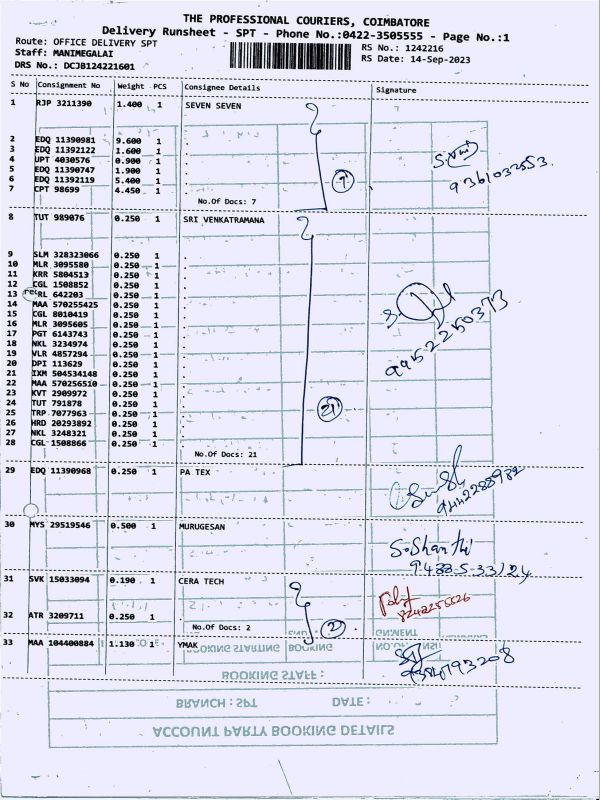 THE PROFESSIONAL COURIERS, COIMBATORE
Delivery Runsheet - SPT - Phone No.:0422-3505555 - Page No.:1
Route: OFFICE DELIVERY SPT
Staff: MANIMEGALAI
DRS No.: DCJB124221601
RS No.: 1242216
RS Date: 14-Sep-2023
S No Consignment No Weight PCS Consignee Details Signature
1 RJP 3211390 1.400 1 SEVEN SEVEN
2 EDQ 11390981 9.600 1 .
3 EDQ 11392122 1.600 1 .
4 UPT 4030576 0.900 1 .
5 EDQ 11390747 1.900 1 .
6 EDQ 11392119 5.400 1 .
7 CPT 98699 4.450 1 .
No.Of Docs: 7
7
9361032553
8 TUT 989076 0.250 1 SRI VENKATRAMANA
9 SLM 328323066 0.250 1 .
10 MLR 3095580 0.250 1 .
11 KRR 5804513 0.250 1 .
12 CGL 1508852 0.250 1 .
13 RL 642203 0.250 1 .
14 MAA 570255425 0.250 1 .
15 CGL 8010419 0.250 1 .
16 MLR 3095605 0.250 1 .
17 PGT 6143743 0.250 1 .
18 NKL 3234974 0.250 1 .
19 VLR 4857294 0.250 1 .
20 DPI 113629 0.250 1 .
21 IXM 504534148 0.250 1 .
22 MAA 570256510 0.250 1 .
23 KVT 2909972 0.250 1 .
24 TUT 791878 0.250 1 .
25 TRP 7077963 0.250 1 .
26 HRD 20293892 0.250 1 .
27 NKL 3248321 0.250 1 .
28 CGL 1508866 0.250 1 .
No.Of Docs: 21
21
9952250373
29 EDQ 11390968 0.250 1 PA TEX
9442288982
30 MYS 29519546 0.500 1 MURUGESAN
S.Shanthi
31 SVK 15033094 0.190 1 CERA TECH
32 ATR 3209711 0.250 1 .
No.Of Docs: 2
2
33 MAA 104400884 1.130 1 YMAK
BOOKING STARTING BOOKING
BOOKING STAFF :
BRANCH : SPT DATE :
ACCOUNT PARTY BOOKING DETAILS